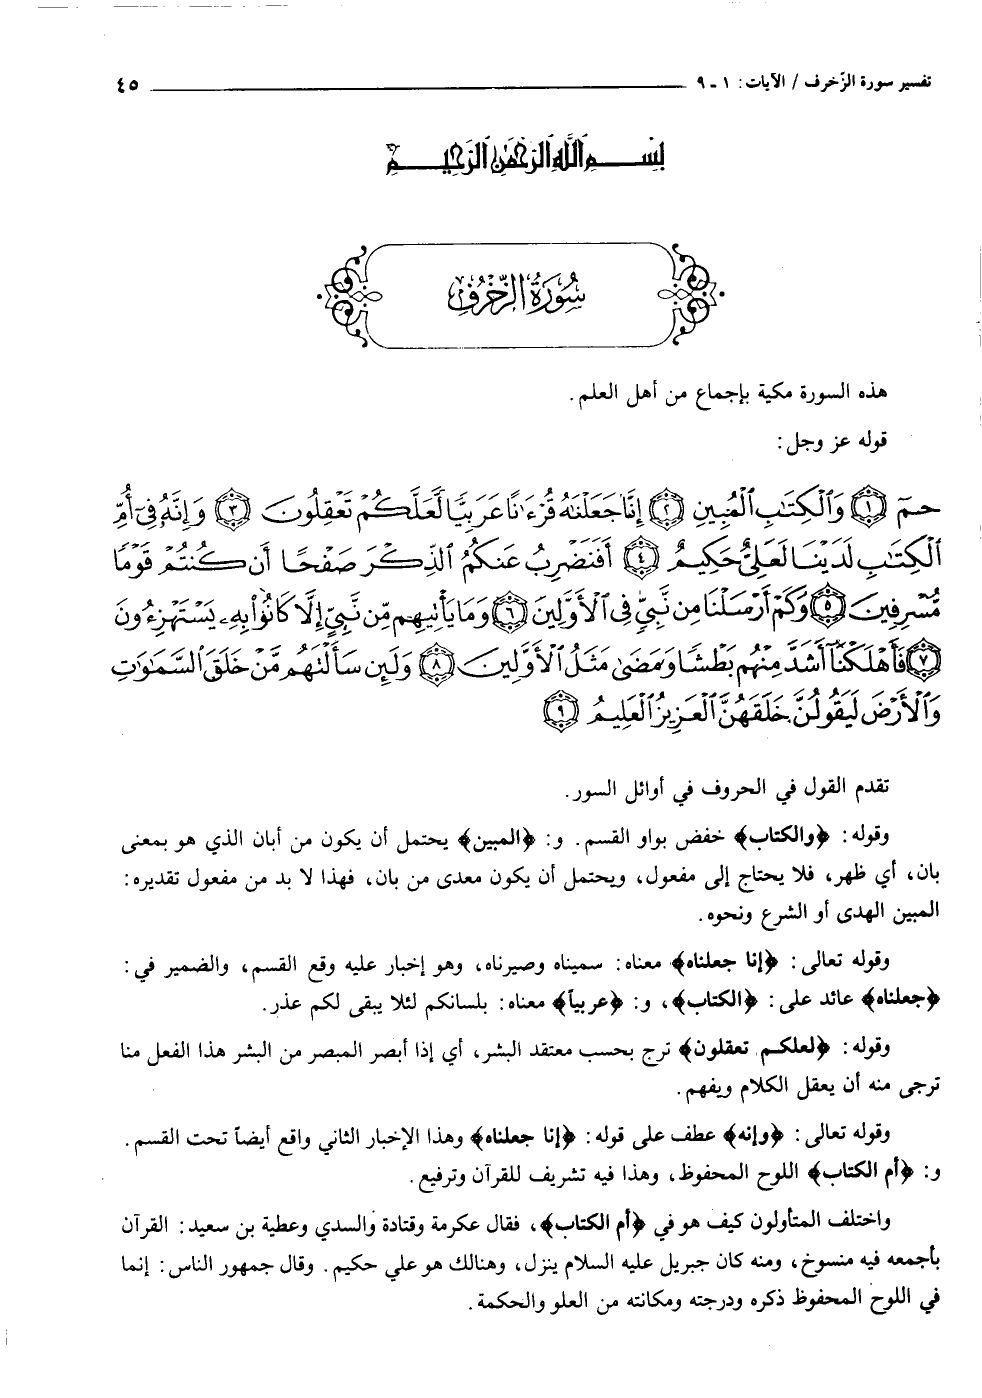 تفسير سورة الزّخرف / الآيات: ١ - ٩ ٤٥
بِسْمِ اللَّهِ الرَّحْمَٰنِ الرَّحِيمِ
سُورَةُ الزُّخْرُفِ
هذه السورة مكية بإجماع من أهل العلم.
قوله عز وجل:
حمٓ ١ وَالْكِتَابِ الْمُبِينِ ٢ إِنَّا جَعَلْنَاهُ قُرْءَانًا عَرَبِيًّا لَّعَلَّكُمْ تَعْقِلُونَ ٣ وَإِنَّهُ فِي أُمِّ
الْكِتَابِ لَدَيْنَا لَعَلِيٌّ حَكِيمٌ ٤ أَفَنَضْرِبُ عَنكُمُ الذِّكْرَ صَفْحًا أَن كُنتُمْ قَوْمًا
مُّسْرِفِينَ ٥ وَكَمْ أَرْسَلْنَا مِن نَّبِيٍّ فِي الْأَوَّلِينَ ٦ وَمَا يَأْتِيهِم مِّن نَّبِيٍّ إِلَّا كَانُوا بِهِ يَسْتَهْزِءُونَ
٧ فَأَهْلَكْنَا أَشَدَّ مِنْهُم بَطْشًا وَمَضَىٰ مَثَلُ الْأَوَّلِينَ ٨ وَلَئِن سَأَلْتَهُم مَّنْ خَلَقَ السَّمَٰوَٰتِ
وَالْأَرْضَ لَيَقُولُنَّ خَلَقَهُنَّ الْعَزِيزُ الْعَلِيمُ ٩
تقدم القول في الحروف في أوائل السور.
وقوله: ﴿والكتاب﴾ خفض بواو القسم. و: ﴿المبين﴾ يحتمل أن يكون من أبان الذي هو بمعنى
بان، أي ظهر، فلا يحتاج إلى مفعول، ويحتمل أن يكون معدى من بان، فهذا لا بد من مفعول تقديره:
المبين الهدى أو الشرع ونحوه.
وقوله تعالى: ﴿إنا جعلناه﴾ معناه: سميناه وصيرناه، وهو إخبار عليه وقع القسم، والضمير في:
﴿جعلناه﴾ عائد على: ﴿الكتاب﴾، و: ﴿عربياً﴾ معناه: بلسانكم لئلا يبقى لكم عذر.
وقوله: ﴿لعلكم تعقلون﴾ ترج بحسب معتقد البشر، أي إذا أبصر المبصر من البشر هذا الفعل منا
ترجى منه أن يعقل الكلام ويفهم.
وقوله تعالى: ﴿وإنه﴾ عطف على قوله: ﴿إنا جعلناه﴾ وهذا الإخبار الثاني واقع أيضاً تحت القسم.
و: ﴿أم الكتاب﴾ اللوح المحفوظ، وهذا فيه تشريف للقرآن وترفيع.
واختلف المتأولون كيف هو في ﴿أم الكتاب﴾، فقال عكرمة وقتادة والسدي وعطية بن سعيد: القرآن
بأجمعه فيه منسوخ، ومنه كان جبريل عليه السلام ينزل، وهنالك هو علي حكيم. وقال جمهور الناس: إنما
في اللوح المحفوظ ذكره ودرجته ومكانته من العلو والحكمة.